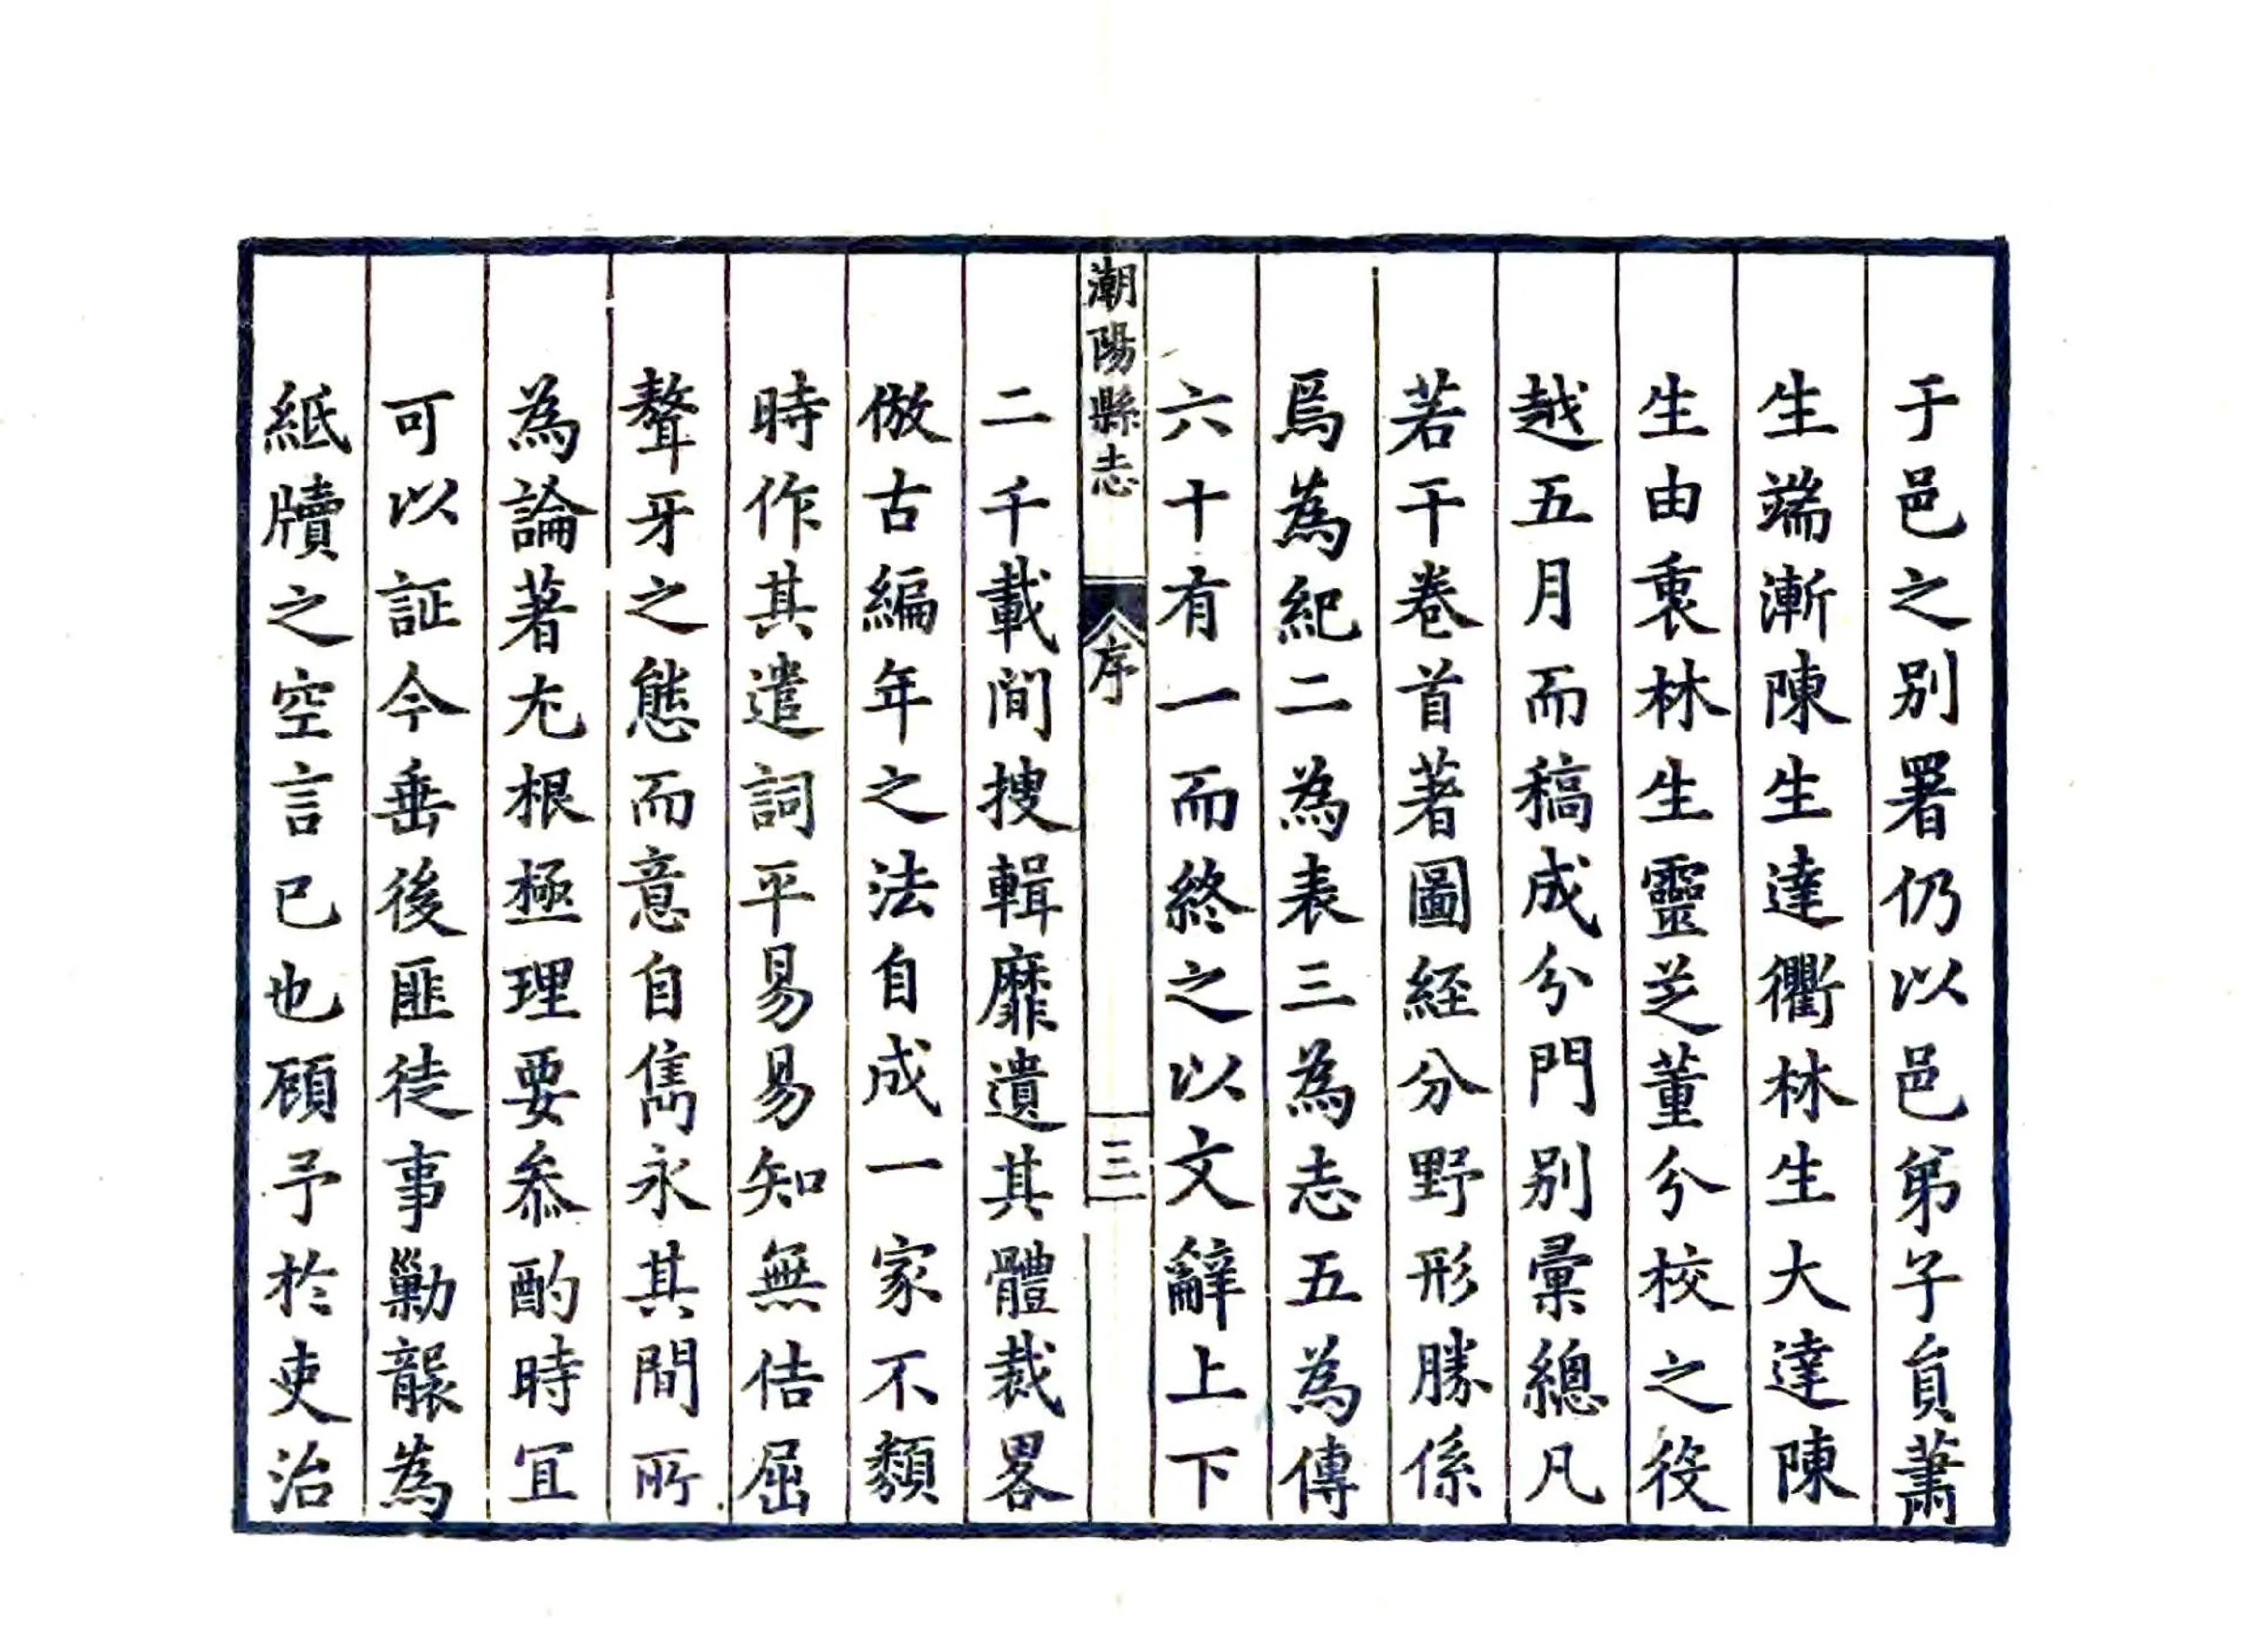 于邑之别署仍以邑弟子員蕭
生端漸陳生達衢林生大達陳
生由衷林生靈芝董分校之役
越五月而稿成分門别彙總凡
若干卷首著圖經分野形勝係
焉為紀二為表三為志五為傳
六十有一而終之以文辭上下
潮陽縣志
序
三
二千載間搜輯靡遺其體裁畧
倣古編年之法自成一家不類
時作其遣詞平易易知無佶屈
聱牙之態而意自雋永其間所
為論著尤根極理要叅酌時宜
可以証今垂後匪徒事勦襲為
紙牘之空言已也顧予於吏治